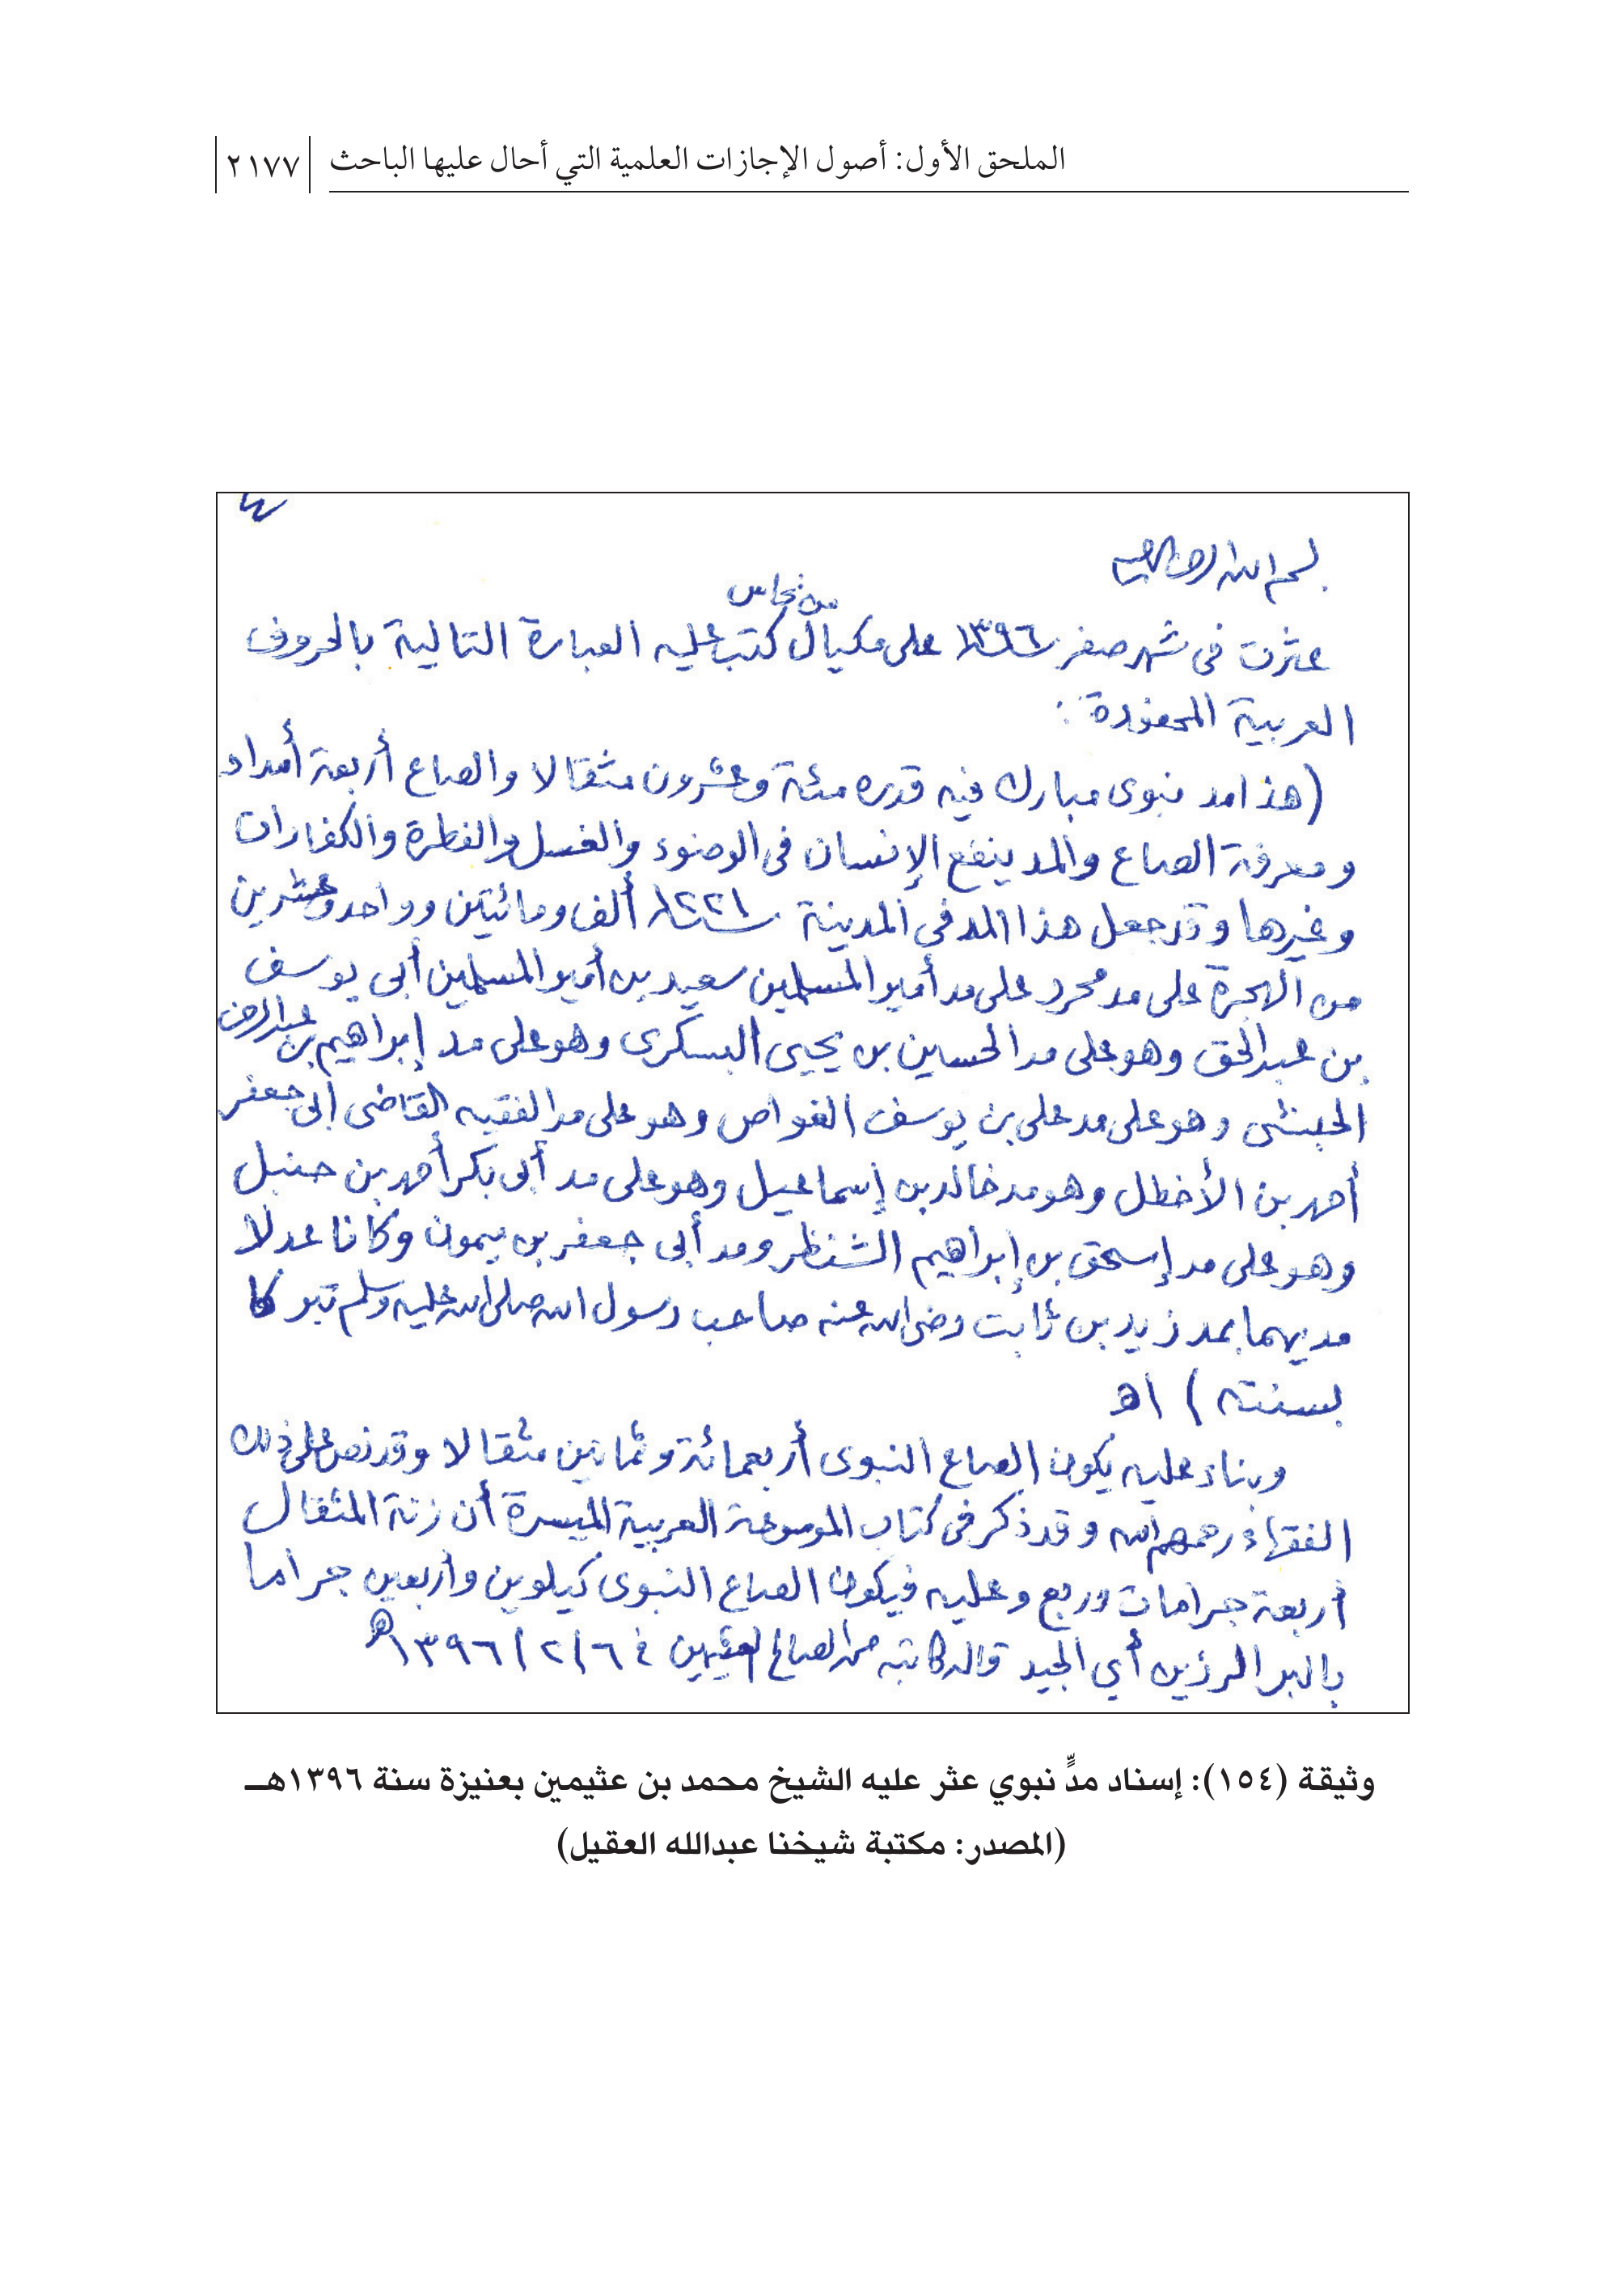 الملحق الأول: أصول الإجازات العلمية التي أحال عليها الباحث ٢١٧٧
بسم الله الرحمن الرحيم
من نحاس
عثرت في شهر صفر سنة ١٣٩٦ على مكيال كتب عليه العبارة التالية بالحروف
العربية المحفورة :
(هذا مد نبوى مبارك فيه قدره مئة وعشرون مثقالا والصاع أربعة أمداد
ومعرفة الصاع والمد ينفع الإنسان فى الوضوء والغسل والفطرة والكفارات
وغيرها وقد جعل هذا المد في المدينة سنة ١٢٢١ ألف ومائيتين وواحد وعشرين
من الهجرة على مد محرر على مد أمير المسلمين سعيد بن أمير المسلمين أبى يوسف
بن عبدالحق وهو على مد الحسين بن يحيى البسكرى وهو على مد إبراهيم بن عبدالرحمن
الحبنشى وهو على مد على بن يوسف الغواص وهو على مد الفقيه القاضى أبى جعفر
أحمد بن الأخطل وهو مد خالد بن إسماعيل وهو على مد أبى بكر أحمد بن حنبل
وهو على مد إسحق بن إبراهيم الشنظر ومد أبى جعفر بن ميمون وكانا عدلا
مديهما بمد زيد بن ثابت رضى الله عنه صاحب رسول الله صلى الله عليه وسلم تبركا
بسنته ) اه
وبناء عليه يكون الصاع النبوى أربعمائة وثمانين مثقالا وقد نص على ذلك
الفقهاء رحمهم الله وقد ذكر فى كتاب الموسوعة العربية الميسرة أن زنة المثقال
أربعة جرامات وربع وعليه فيكون الصاع النبوى كيلوين وأربعين جراما
بالبر الرزين أي الجيد قاله كاتبه محمد الصالح العثيمين في ١٣٩٦/٢/٦هـ
وثيقة (١٥٤): إسناد مدٍّ نبوي عثر عليه الشيخ محمد بن عثيمين بعنيزة سنة ١٣٩٦هـ
(المصدر: مكتبة شيخنا عبدالله العقيل)